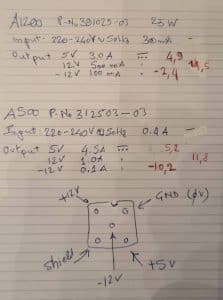 A1200 P.No 391029-03 23W
Input: 220-240V ≈ 50Hz 300mA -
Output 5V 3.0A ⎓ 4,9
12V 500mA 11,5
-12V 100mA -2,4
A500 P.No 312503-03
Input: 220-240V ≈ 50Hz 0.4A -
Output 5V 4.5A ⎓ 5,2
12V 1.0A 11,8
-12V 0.1A -10,2
+12V GND (φV)
shield +5V
-12V